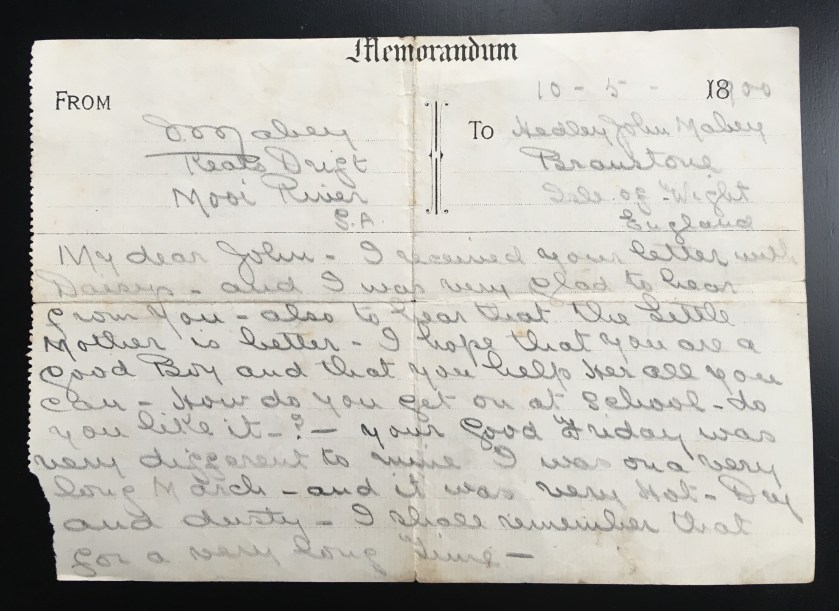 Memorandum
10 - 5 - 1900
FROM
Mabey
Keats Drift
Mooi River
S.A
To Hedley John Mabey
Branstone
Isle of Wight
England
My dear John - I received your letter with
Daisys - and I was very glad to hear
from you - also to hear that the Little
Mother is better - I hope that you are a
good Boy and that you help Her all you
can - How do you get on at School - do
you like it - ? - your Good Friday was
very different to mine I was on a very
long March - and it was very Hot - Dry
and dusty - I shall remember that
for a very long Time -